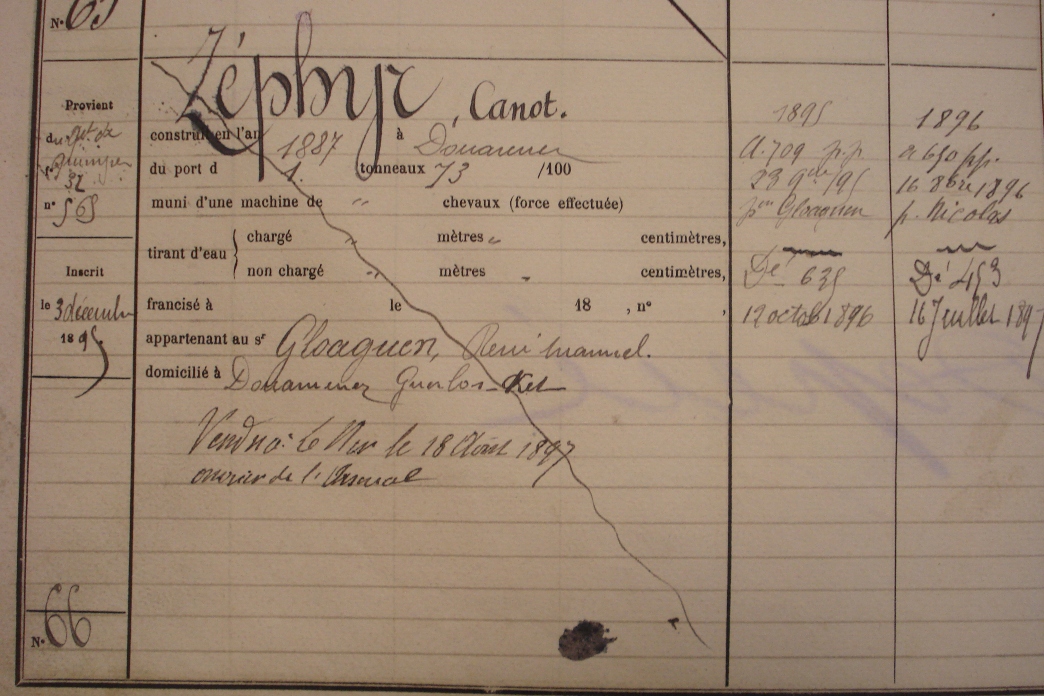 N° 65
Zéphyr, Canot.
Provient
du qt de
quimper
f° 32
n° 565
Inscrit
le 3 décembre
1895
N° 66
construit en l'an 1887 à Douarnenez
du port d 1. tonneaux 73 /100
muni d'une machine de " chevaux (force effectuée)
tirant d'eau { chargé " mètres " centimètres,
non chargé " mètres " centimètres,
francisé à le 18 , n° ,
appartenant au sr Gloaguen, René
domicilié à Douarnenez
Vendu à Le le 18 Août 1897
ouvrier de l'Arsenal
1895
a. 709 p.p.
23 9bre 95
pon Gloaguen
Dé 635
12 octob 1896
1896
a 650 pp.
16 8bre 1896
p. Nicolas
Dé 453
16 Juillet 1897